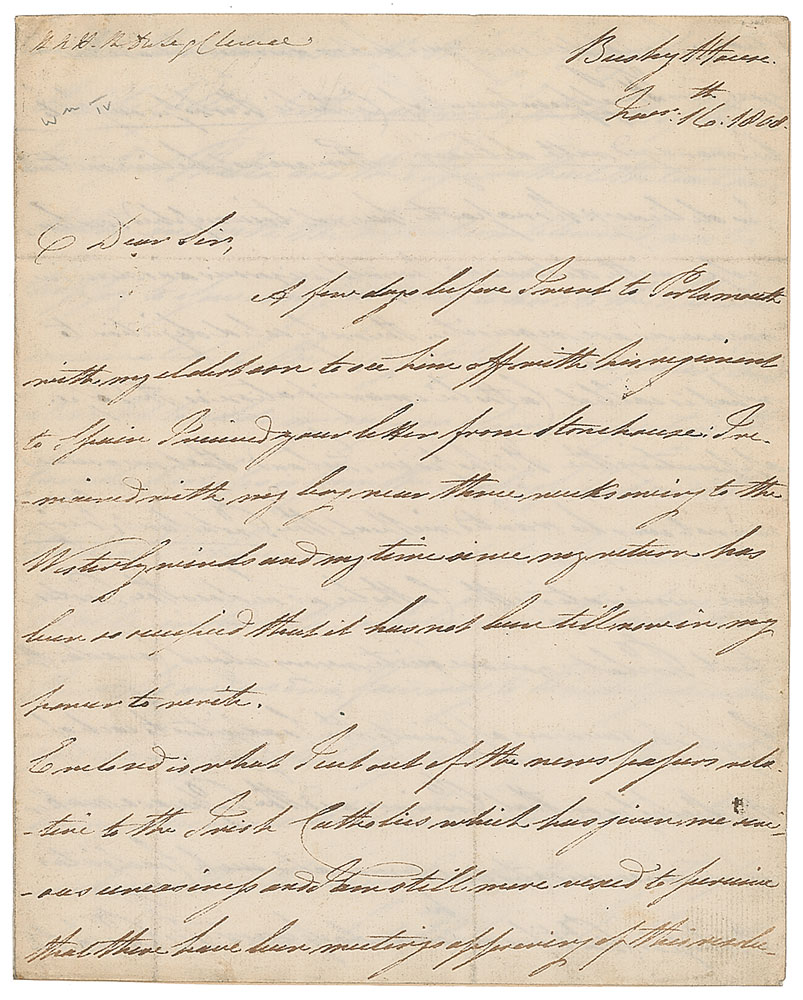 H.R.H. the Duke of Clarence
Wm IV
Bushy House.
Novr. 16th. 1808.
Dear Sir,
A few days before I went to Portsmouth
with my eldest son to see him off with his regiment
to Spain I received your letter from Stonehouse: I re-
-mained with my boy near three weeks owing to the
Westerly winds and my time since my return has
been so occupied that it has not been till now in my
power to write.
Enclosed is what I cut out of the news papers rela-
-tive to the Irish Catholics which has given me seri-
-ous uneasiness and I am still more vexed to perceive
that there have been meetings approving of this resolu-